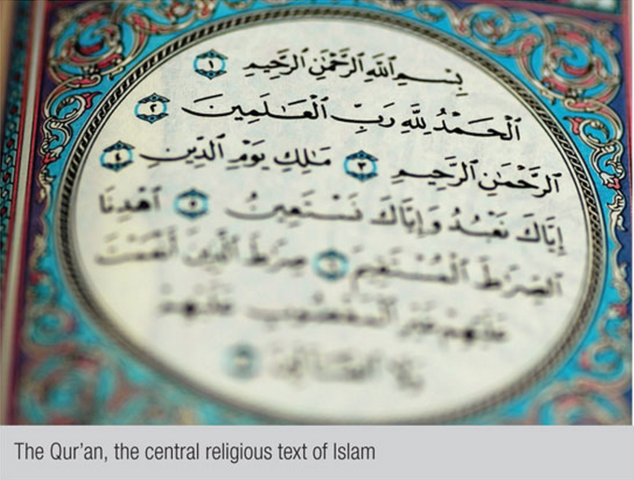 بِسْمِ ٱللَّهِ ٱلرَّحْمَٰنِ ٱلرَّحِيمِ ١
ٱلْحَمْدُ لِلَّهِ رَبِّ ٱلْعَٰلَمِينَ ٢
ٱلرَّحْمَٰنِ ٱلرَّحِيمِ ٣ مَٰلِكِ يَوْمِ ٱلدِّينِ ٤
إِيَّاكَ نَعْبُدُ وَإِيَّاكَ نَسْتَعِينُ ٥ ٱهْدِنَا
ٱلصِّرَٰطَ ٱلْمُسْتَقِيمَ ٦ صِرَٰطَ ٱلَّذِينَ أَنْعَمْتَ
عَلَيْهِمْ غَيْرِ ٱلْمَغْضُوبِ عَلَيْهِمْ
وَلَا ٱلضَّآلِّينَ
The Qur’an, the central religious text of Islam